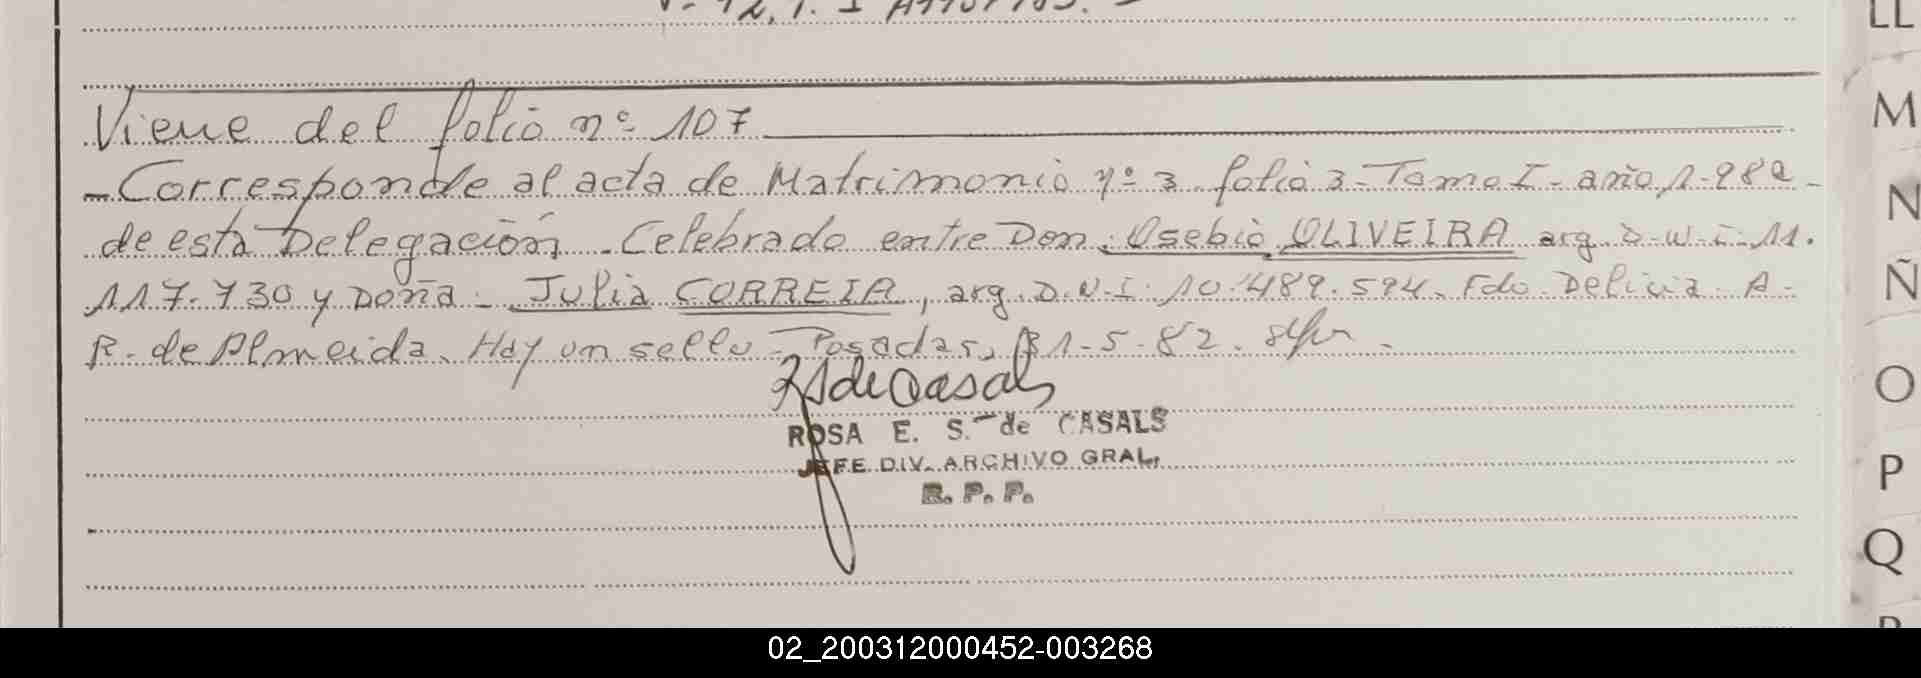 Viene del folio nº 107
- Corresponde al acta de Matrimonio nº 3 folio 3 - Tomo I - año 1.982 -
de esta Delegación. Celebrado entre Don. Osebio OLIVEIRA arg. D.N.I. 11.
117.730 y Doña - Julia CORREIA, arg. D.N.I. 10.489.594. Fdo. Delicia A.
R. de Almeida. Hay un sello - Posadas, 31-5-82.
de Casals
ROSA E. S. de CASALS
JEFE DIV. ARCHIVO GRAL.
R. P. P.
LL
M
N
Ñ
O
P
Q
02_200312000452-003268